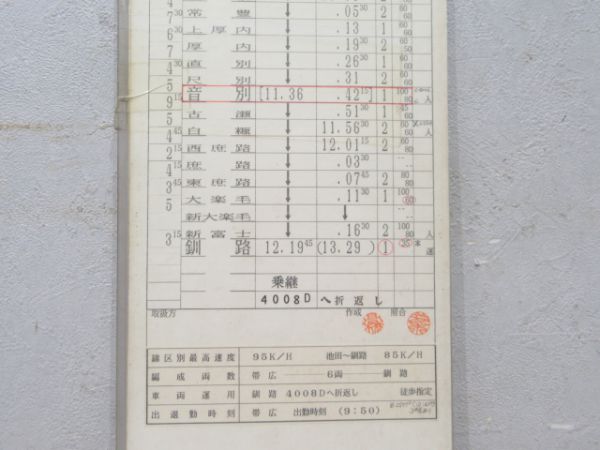 7 30 常豊 ↓ .05 30 2 60 80
6 上厚内 ↓ .13 1 60 80
7 厚内 ↓ .19 30 2 60 50
4 直別 ↓ .26 30 1 60 80
5 尺別 ↓ .31 2 60 60
9 15 音別 [11.36 .42 15] 1 100 80 人
古瀬 ↓ .51 30 1 45 60
4 45 白糠 11.56 30 2 60 80 人
2 15 西庶路 ↓ 12.01 15 2 60 80
庶路 ↓ .03 30
3 45 東庶路 ↓ .07 45 2 80 80
5 大楽毛 ↓ .11 30 1 100 60
新大楽毛 ↓ ↓
新富士 ↓ .16 30 2 80 人
3 15 釧路 12.19 45 (13.29) ① 35 本運
乗継
4008D へ折返し
取扱方 作成 照合
線区別最高速度 95K/H 池田〜釧路 85K/H
編成両数 帯広 ── 6両 ── 釧路
車両運用 釧路 4008Dへ折返し 徒歩指定
出退勤時刻 帯広 出勤時刻 (9:50)